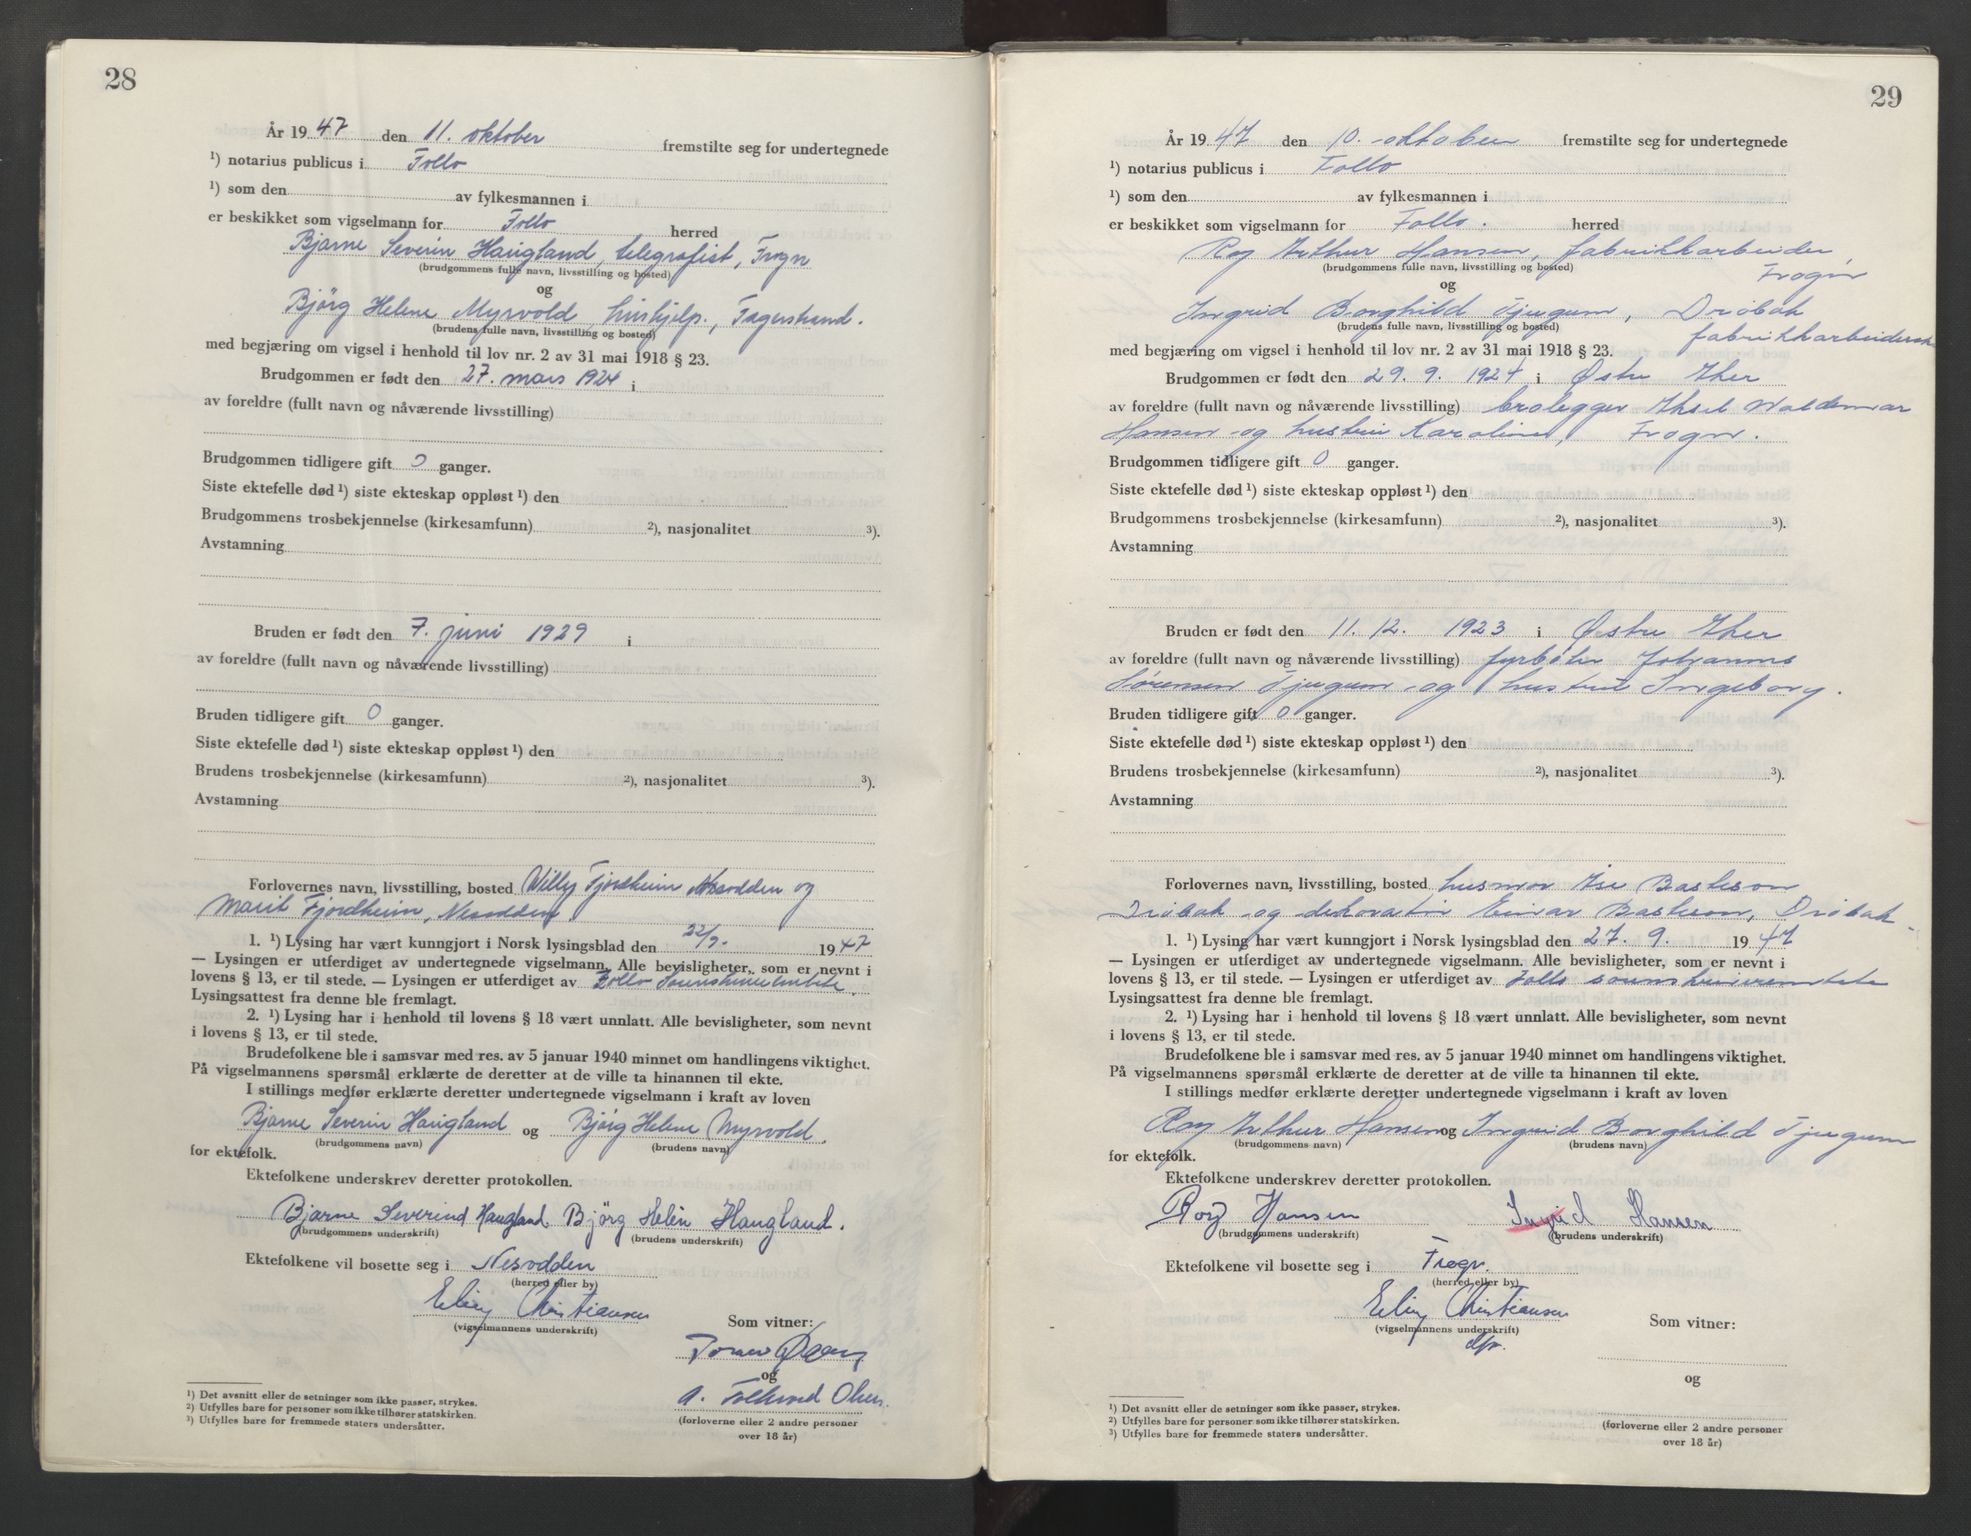 28
År 1947 den 11. oktober fremstilte seg for undertegnede
¹) notarius publicus i Follo
¹) som den av fylkesmannen i
er beskikket som vigselmann for Follo herred
Bjarne Severin Haugland, telegrafist, Frogn
(brudgommens fulle navn, livsstilling og bosted)
og
Bjørg Helene Myrvold, hushjelp., Fagerstrand.
(brudens fulle navn, livsstilling og bosted)
med begjæring om vigsel i henhold til lov nr. 2 av 31 mai 1918 § 23.
Brudgommen er født den 27. mars 1924 i
av foreldre (fullt navn og nåværende livsstilling)
Brudgommen tidligere gift 0 ganger.
Siste ektefelle død ¹) siste ekteskap oppløst ¹) den
Brudgommens trosbekjennelse (kirkesamfunn) ²), nasjonalitet ³).
Avstamning
Bruden er født den 7. juni 1929 i
av foreldre (fullt navn og nåværende livsstilling)
Bruden tidligere gift 0 ganger.
Siste ektefelle død ¹) siste ekteskap oppløst ¹) den
Brudens trosbekjennelse (kirkesamfunn) ²), nasjonalitet ³).
Avstamning
Forlovernes navn, livsstilling, bosted Willy Fjordheim Nesodden og
Marit Fjordheim, Nesodden
1. ¹) Lysing har vært kunngjort i Norsk lysingsblad den 22/9. 1947
— Lysingen er utferdiget av undertegnede vigselmann. Alle bevisligheter, som er nevnt i
lovens § 13, er til stede. — Lysingen er utferdiget av Follo Sorenskriverembete.
Lysingsattest fra denne ble fremlagt.
2. ¹) Lysing har i henhold til lovens § 18 vært unnlatt. Alle bevisligheter, som nevnt
i lovens § 13, er til stede.
Brudefolkene ble i samsvar med res. av 5 januar 1940 minnet om handlingens viktighet.
På vigselmannens spørsmål erklærte de deretter at de ville ta hinannen til ekte.
I stillings medfør erklærte deretter undertegnede vigselmann i kraft av loven
Bjarne Severin Haugland og Bjørg Helene Myrvold.
(brudgommens navn) (brudens navn)
for ektefolk.
Ektefolkene underskrev deretter protokollen.
Bjarne Severind Haugland. Bjørg Helén Haugland.
(brudgommens underskrift) (brudens underskrift)
Ektefolkene vil bosette seg i Nesodden
(herred eller by)
Erling Christiansen
(vigselmannens underskrift)
Som vitner:
og
A. Olsen.
(forloverne eller 2 andre personer
over 18 år)
¹) Det avsnitt eller de setninger som ikke passer, strykes.
²) Utfylles bare for personer som ikke tilhører statskirken.
³) Utfylles bare for fremmede staters undersåtter.
29
År 1947 den 10. oktober fremstilte seg for undertegnede
¹) notarius publicus i Follo
¹) som den av fylkesmannen i
er beskikket som vigselmann for Follo. herred
Roy Arthur Hansen, fabrikkarbeider,
(brudgommens fulle navn, livsstilling og bosted)
Frogn
og
Ingrid Borghild Tjugum, Drøbak
(brudens fulle navn, livsstilling og bosted)
fabrikkarbeiderske
med begjæring om vigsel i henhold til lov nr. 2 av 31 mai 1918 § 23.
Brudgommen er født den 29. 9. 1924 i Østre Aker
av foreldre (fullt navn og nåværende livsstilling) brolegger Aksel Waldemar
Hansen og hustru Karoline, Frogn.
Brudgommen tidligere gift 0 ganger.
Siste ektefelle død ¹) siste ekteskap oppløst ¹) den
Brudgommens trosbekjennelse (kirkesamfunn) ²), nasjonalitet ³).
Avstamning
Bruden er født den 11. 12. 1923 i Østre Aker
av foreldre (fullt navn og nåværende livsstilling) fyrbøter Johannes
Sørensen Tjugum og hustru Ingeborg.
Bruden tidligere gift 0 ganger.
Siste ektefelle død ¹) siste ekteskap oppløst ¹) den
Brudens trosbekjennelse (kirkesamfunn) ²), nasjonalitet ³).
Avstamning
Forlovernes navn, livsstilling, bosted husmor Basteson
Drøbak og dekoratør Einar Basteson, Drøbak.
1. ¹) Lysing har vært kunngjort i Norsk lysingsblad den 27. 9. 1947
— Lysingen er utferdiget av undertegnede vigselmann. Alle bevisligheter, som er nevnt i
lovens § 13, er til stede. — Lysingen er utferdiget av Follo sorenskriverembete
Lysingsattest fra denne ble fremlagt.
2. ¹) Lysing har i henhold til lovens § 18 vært unnlatt. Alle bevisligheter, som nevnt
i lovens § 13, er til stede.
Brudefolkene ble i samsvar med res. av 5 januar 1940 minnet om handlingens viktighet.
På vigselmannens spørsmål erklærte de deretter at de ville ta hinannen til ekte.
I stillings medfør erklærte deretter undertegnede vigselmann i kraft av loven
Roy Arthur Hansen og Ingrid Borghild Tjugum
(brudgommens navn) (brudens navn)
for ektefolk.
Ektefolkene underskrev deretter protokollen.
Roy Hansen Ingrid Hansen
(brudgommens underskrift) (brudens underskrift)
Ektefolkene vil bosette seg i Frogn.
(herred eller by)
Erling Christiansen
(vigselmannens underskrift)
Som vitner:
og
(forloverne eller 2 andre personer
over 18 år)
¹) Det avsnitt eller de setninger som ikke passer, strykes.
²) Utfylles bare for personer som ikke tilhører statskirken.
³) Utfylles bare for fremmede staters undersåtter.